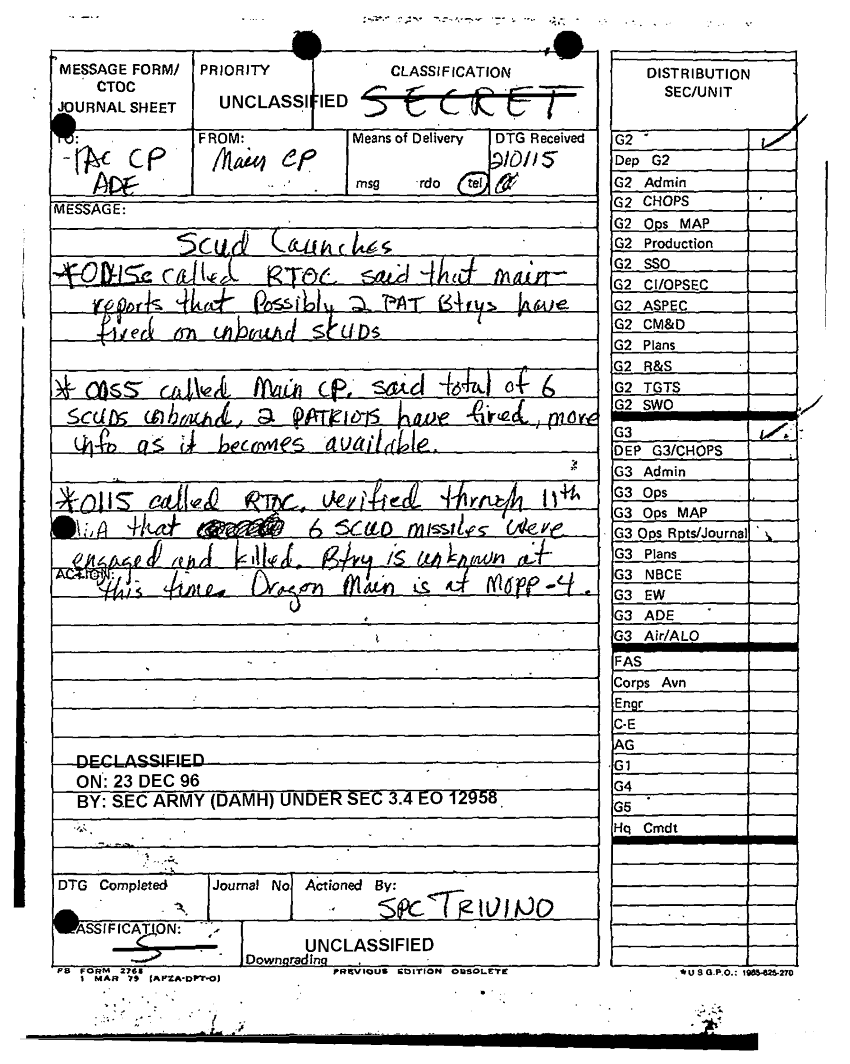 MESSAGE FORM/
CTOC
JOURNAL SHEET
PRIORITY
UNCLASSIFIED
CLASSIFICATION
SECRET
TO:
TAC CP
ADE
FROM:
Main CP
Means of Delivery
msg rdo tel
DTG Received
210115
MESSAGE:
Scud Launches
called RTOC said that main
reports that Possibly 2 PAT Btrys have
fired on unbound SCUDS
* 0055 called Main CP. said total of 6
SCUDS unbound, 2 PATRIOTS have fired, more
info as it becomes available.
*0115 called RTOC, verified through 11th
that 6 SCUD missiles were
engaged and killed. Btry is unknown at
ACTION:
this time. Dragon Main is at MOPP-4.
DECLASSIFIED
ON: 23 DEC 96
BY: SEC ARMY (DAMH) UNDER SEC 3.4 EO 12958
DTG Completed
Journal No
Actioned By:
SPC TRIVINO
CLASSIFICATION:
S
UNCLASSIFIED
Downgrading
FB FORM 2768
1 MAR 79 (AFZA-DPT-O)
PREVIOUS EDITION OBSOLETE
DISTRIBUTION
SEC/UNIT
G2
Dep G2
G2 Admin
G2 CHOPS
G2 Ops MAP
G2 Production
G2 SSO
G2 CI/OPSEC
G2 ASPEC
G2 CM&D
G2 Plans
G2 R&S
G2 TGTS
G2 SWO
G3
DEP G3/CHOPS
G3 Admin
G3 Ops
G3 Ops MAP
G3 Ops Rpts/Journal
G3 Plans
G3 NBCE
G3 EW
G3 ADE
G3 Air/ALO
FAS
Corps Avn
Engr
C-E
AG
G1
G4
G5
Hq Cmdt
*U S G.P.O.: 1985-625-270